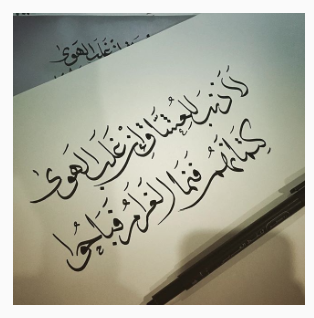 غلب الهوى
لا ذنب للعشاق إن غلب الهوى
كتمانهم فنما الغرام فباحوا